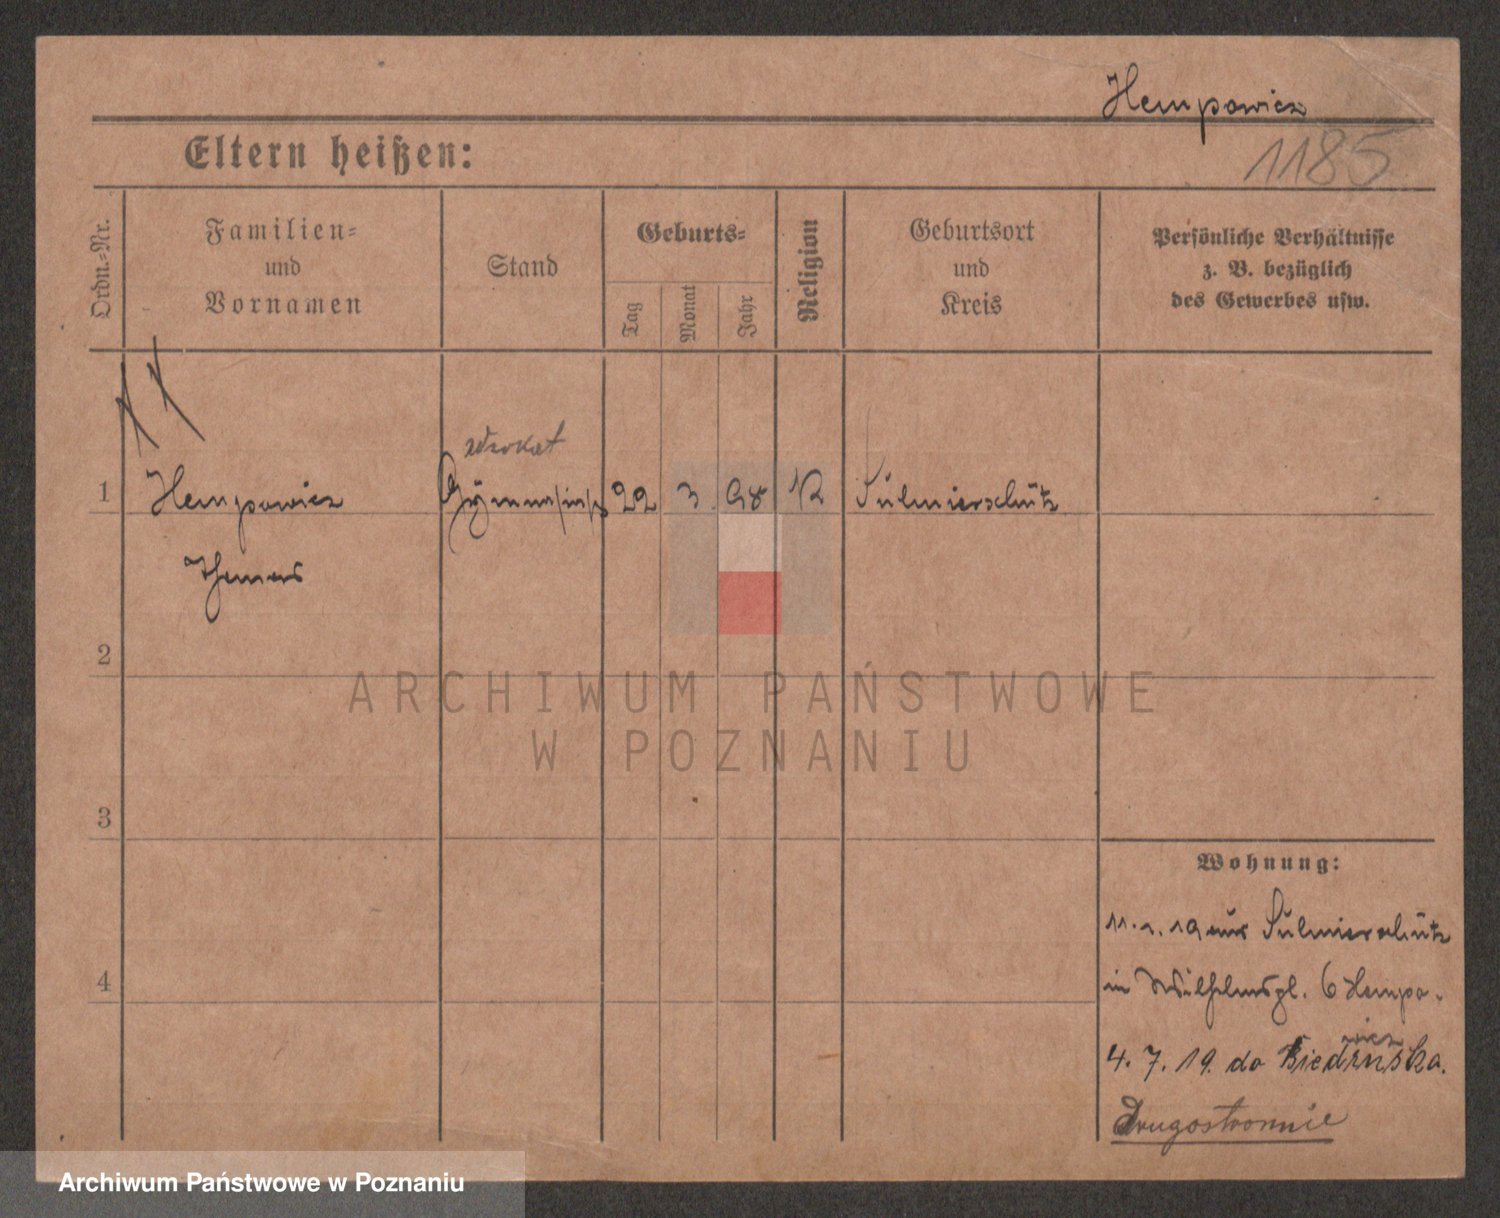 Hempowicz
1185
Eltern heißen:
Ordn.-Nr.
Familien-
und
Vornamen
Stand
Geburts-
Tag
Monat
Jahr
Religion
Geburtsort
und
Kreis
Persönliche Verhältnisse
z. B. bezüglich
des Gewerbes usw.
adwokat
1 Hempowicz 22 3 98 K Sulmierschütz
Thomas
2
ARCHIWUM PAŃSTWOWE
W POZNANIU
3
Wohnung:
11. 1. 19 aus Sulmierschütz
4
in Wilhelmspl. 6 Hempo-
wicz
4. 7. 19. do Biedruska.
Drugostronnie
Archiwum Państwowe w Poznaniu